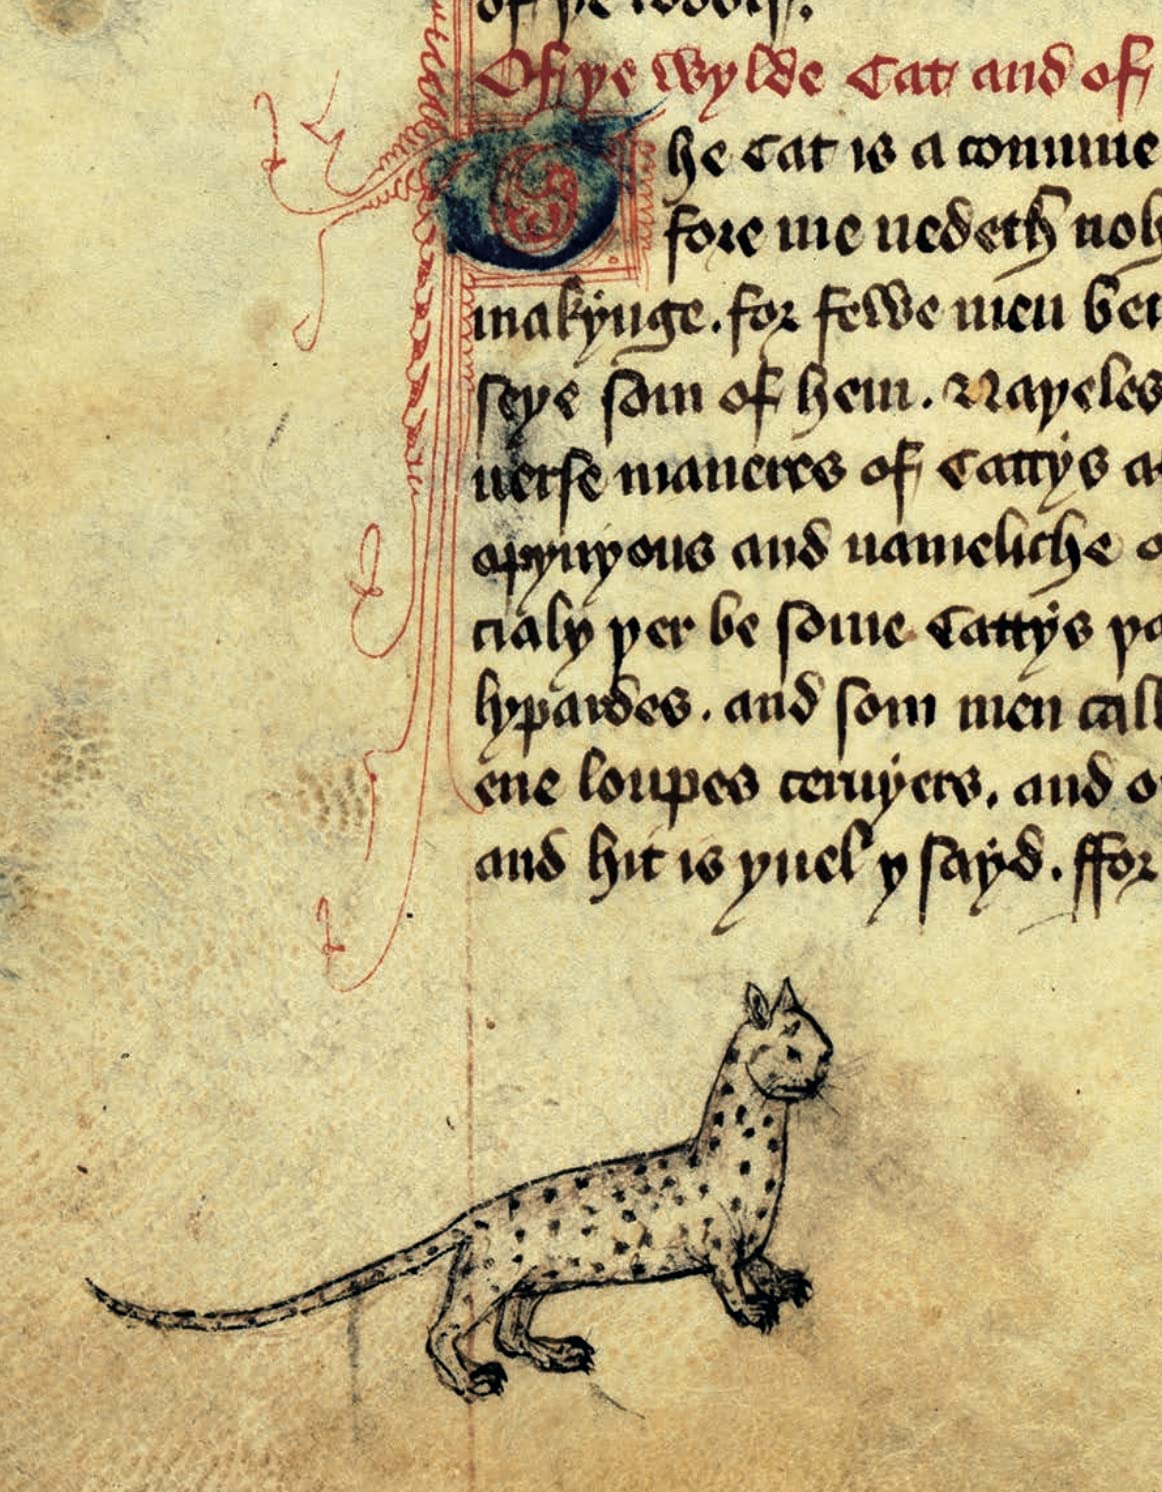 of þe wodis.
Of þe wylde Cat and of
The Cat is a comune
fore me nedeth noh
makynge. for fewe men bet
seye som of hem. Naþeles
uerse maneres of Cattys a
opynyons and nameliche o
cialy þer be some Cattys þa
lypardes. and som men call
ene loupes ceruyers. and o
and hit is yuel y sayd. ffor